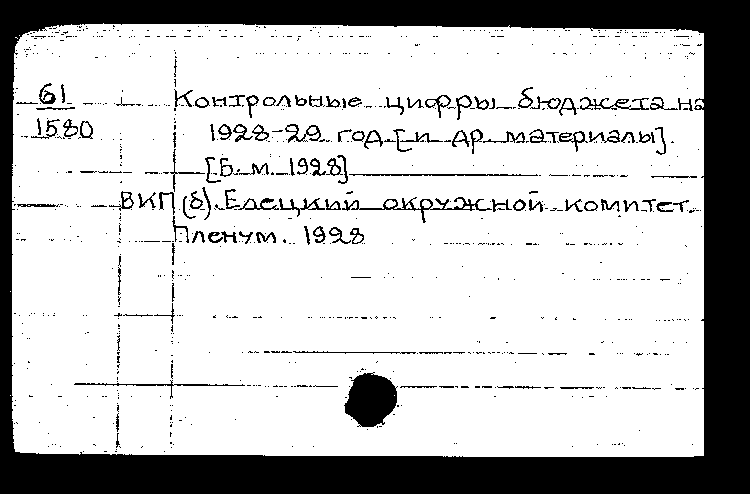 61 Контрольные цифры бюджета на
1580 1928-29 год.[и др. материалы].
[Б. м. 1928]
ВКП(б). Елецкий окружной комитет.
Пленум. 1928